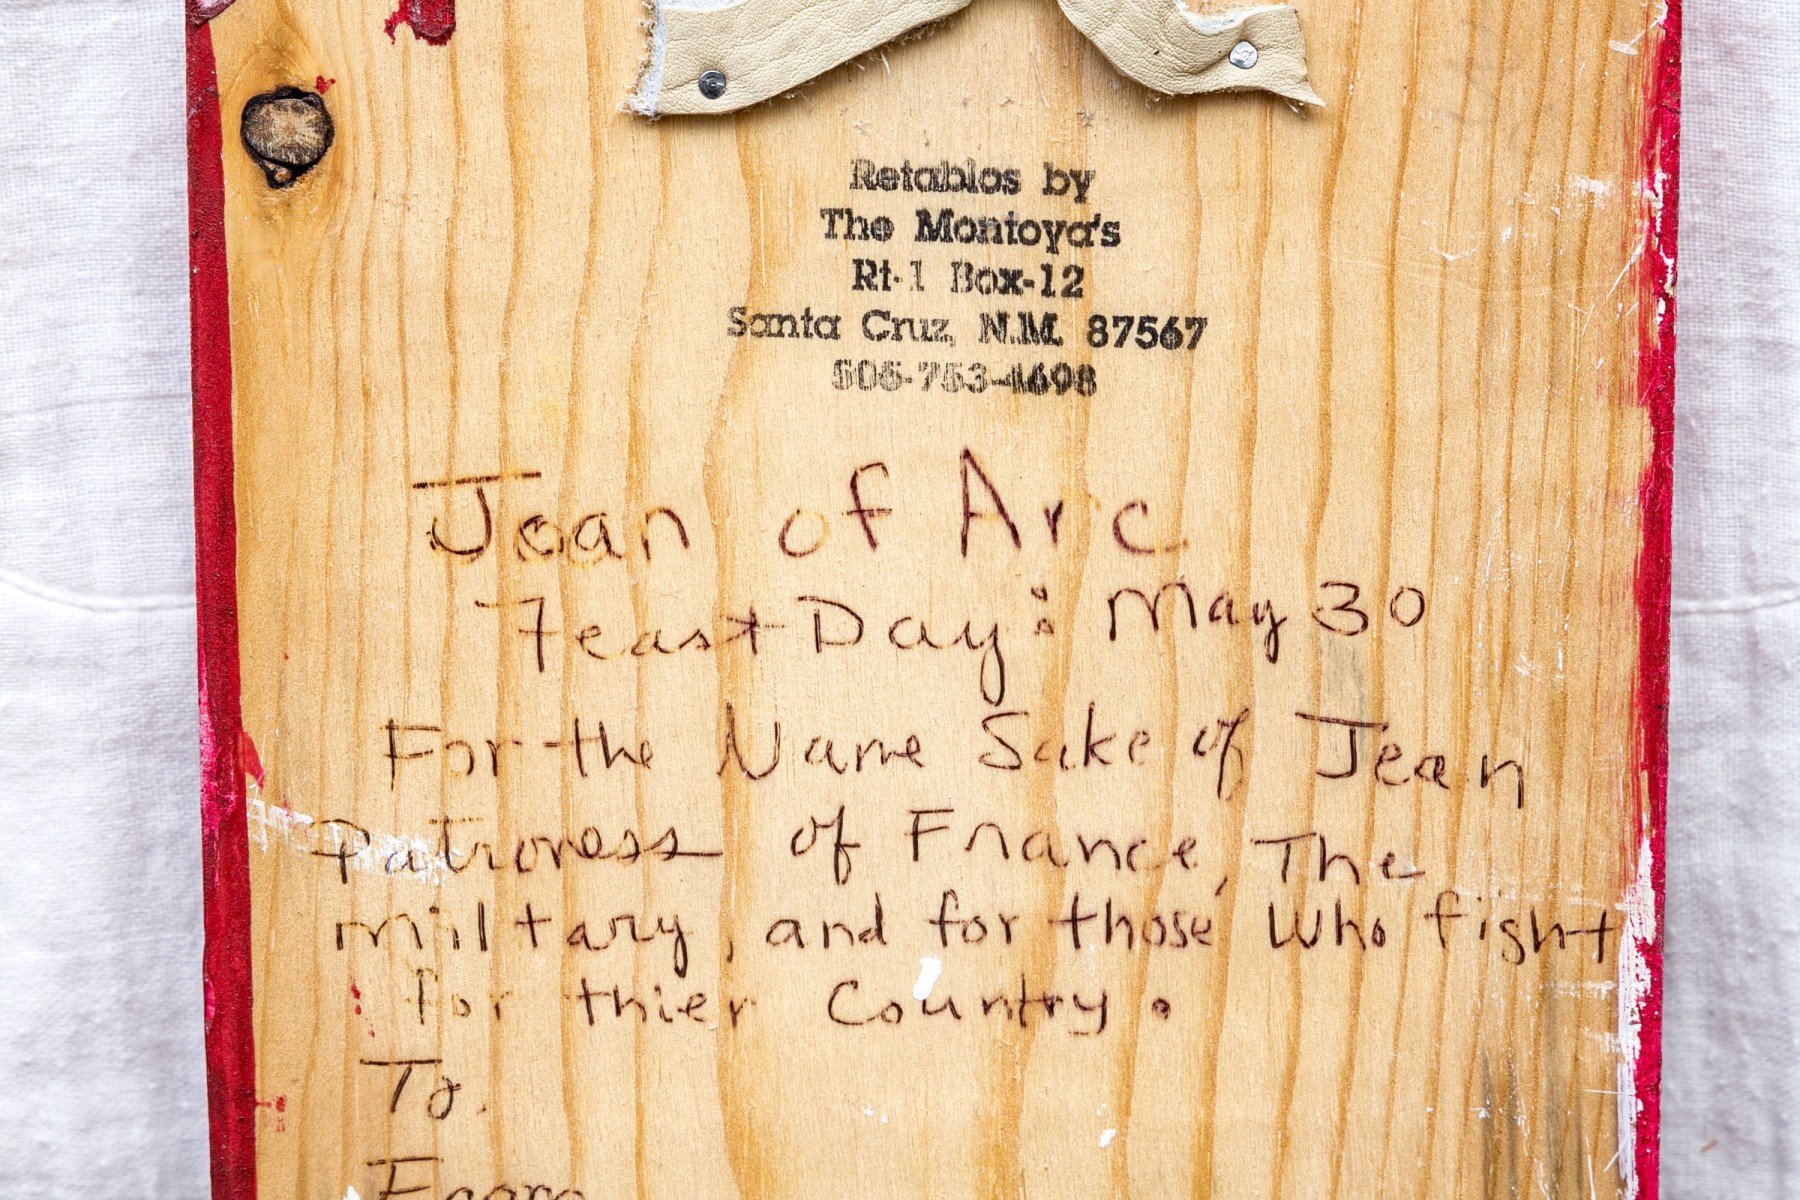 Retablos by
The Montoya's
Rt-1 Box-12
Santa Cruz, N.M. 87567
505-753-4698
Joan of Arc
Feast Day: May 30
For the Name Sake of Jean
Patroness of France, The
military, and for those who fight
for thier Country.
To.